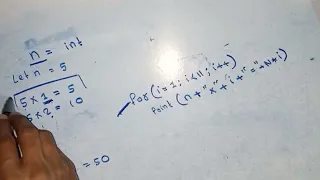 n = int
Let n = 5
5 x 1 = 5
5 x 2 = 10
= 50
for(i=1; i<11; i++)
Point(n+"x"+i+"="+n*i)